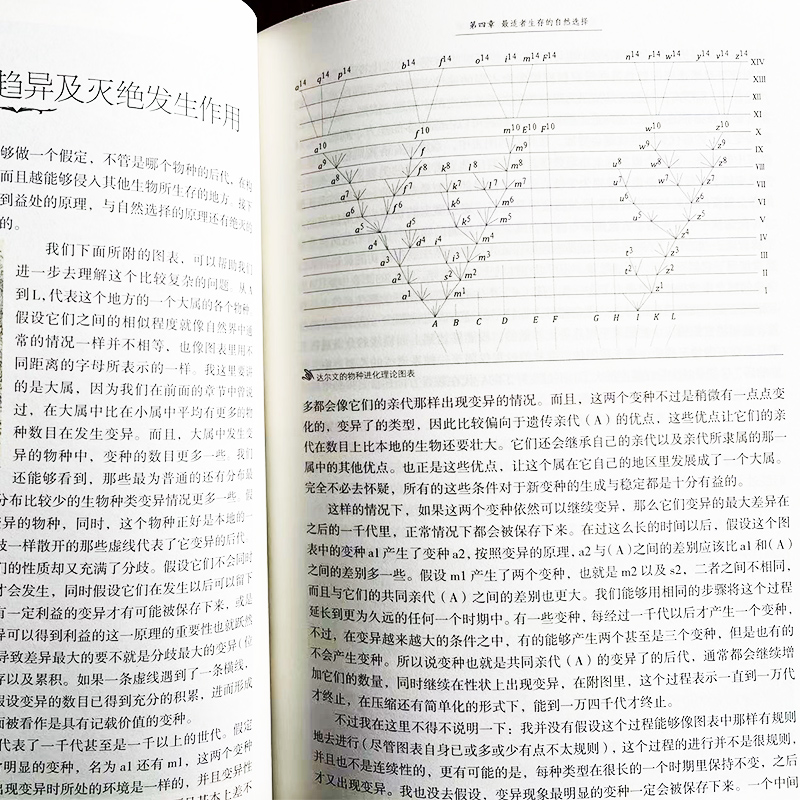 趋异及灭绝发生作用
够做一个假定，不管是哪个物种的后代，在
而且越能够侵入其他生物所生存的地方。
到益处的原理，与自然选择的原理还有绝灭的
的。
我们下面所附的图表，可以帮助我们
进一步去理解这个比较复杂的问题。从A
到L，代表这个地方的一个大属的各个物种，
假设它们之间的相似程度就像自然界中通
常的情况一样并不相等，也像图表里用不
同距离的字母所表示的一样。我这里要讲
的是大属，因为我们在前面的章节中曾说
过，在大属中比在小属中平均有更多的物
种数目在发生变异。而且，大属中发生变
异的物种中，变种的数目更多一些。我们
还能够看到，那些最为普通的还有分布最
分布比较少的生物种类变异情况更多一些。假
变异的物种，同时，这个物种正好是本地的一
枝一样散开的那些虚线代表了它变异的后代。
们的性质却又充满了分歧。假设它们不会同时
才会发生，同时假设它们在发生以后可以留下
有一定利益的变异才有可能被保存下来，或是
异可以得到利益的这一原理的重要性也就跃然
导致差异最大的要不就是分歧最大的变异（位
存以及累积。如果一条虚线遇到了一条横线，
假设变异的数目已得到充分的积累，进而形成
而被看作是具有记载价值的变种。
代表了一千代甚至是一千以上的世代。假定
常明显的变种，名为a1还有m1，这两个变种
出现变异时所处的环境是一样的，并且变异性
第四章 最适者生存的自然选择
a14 q14 p14 b14 f14 o14 i14 m14 E14 F14 n14 r14 w14 y14 v14 z14 XIV
XIII
XII
XI
a10 f10 m10 E10 F10 w10 z10 X
a9 f m9 w9 z9 IX
a8 f8 k8 l8 m8 u8 w8 z8 VIII
a7 f7 k7 l7 m7 u7 w7 z7 VII
a6 f6 k6 m6 u6 z6 VI
a5 d5 k5 m5 u5 z5 V
a4 d4 i4 m4 z4 IV
a3 i3 m3 t3 z3 III
a2 s2 m2 t2 z2 II
a1 m1 z1 I
A B C D E F G H I K L
达尔文的物种进化理论图表
多都会像它们的亲代那样出现变异的情况。而且，这两个变种不过是稍微有一点点变
化的，变异了的类型，因此比较偏向于遗传亲代（A）的优点，这些优点让它们的亲
代在数目上比本地的生物还要壮大。它们还会继承自己的亲代以及亲代所隶属的那一
属中的其他优点。也正是这些优点，让这个属在它自己的地区里发展成了一个大属。
完全不必去怀疑，所有的这些条件对于新变种的生成与稳定都是十分有益的。
这样的情况下，如果这两个变种依然可以继续变异，那么它们变异的最大差异在
之后的一千代里，正常情况下都会被保存下来。在过这么长的时间以后，假设这个图
表中的变种a1产生了变种a2，按照变异的原理，a2与（A）之间的差别应该比a1和（A）
之间的差别多一些。假设m1产生了两个变种，也就是m2以及s2，二者之间不相同，
而且与它们的共同亲代（A）之间的差别也更大。我们能够用相同的步骤将这个过程
延长到更为久远的任何一个时期中。有一些变种，每经过一千代以后才产生一个变种，
不过，在变异越来越大的条件之中，有的能够产生两个甚至是三个变种，但是也有的
不会产生变种。所以说变种也就是共同亲代（A）的变异了的后代，通常都会继续增
加它们的数量，同时继续在性状上出现变异，在附图里，这个过程表示一直到一万代
才终止，在压缩还有简单化的形式下，能到一万四千代才终止。
不过我在这里不得不说明一下：我并没有假设这个过程能够像图表中那样有规则
地去进行（尽管图表自身已或多或少有点不太规则），这个过程的进行并不是很规则，
并且也不是连续性的，更有可能的是，每种类型在很长的一个时期里保持不变，之后
才又出现变异。我也没去假设，变异现象最明显的变种一定会被保存下来。一个中间